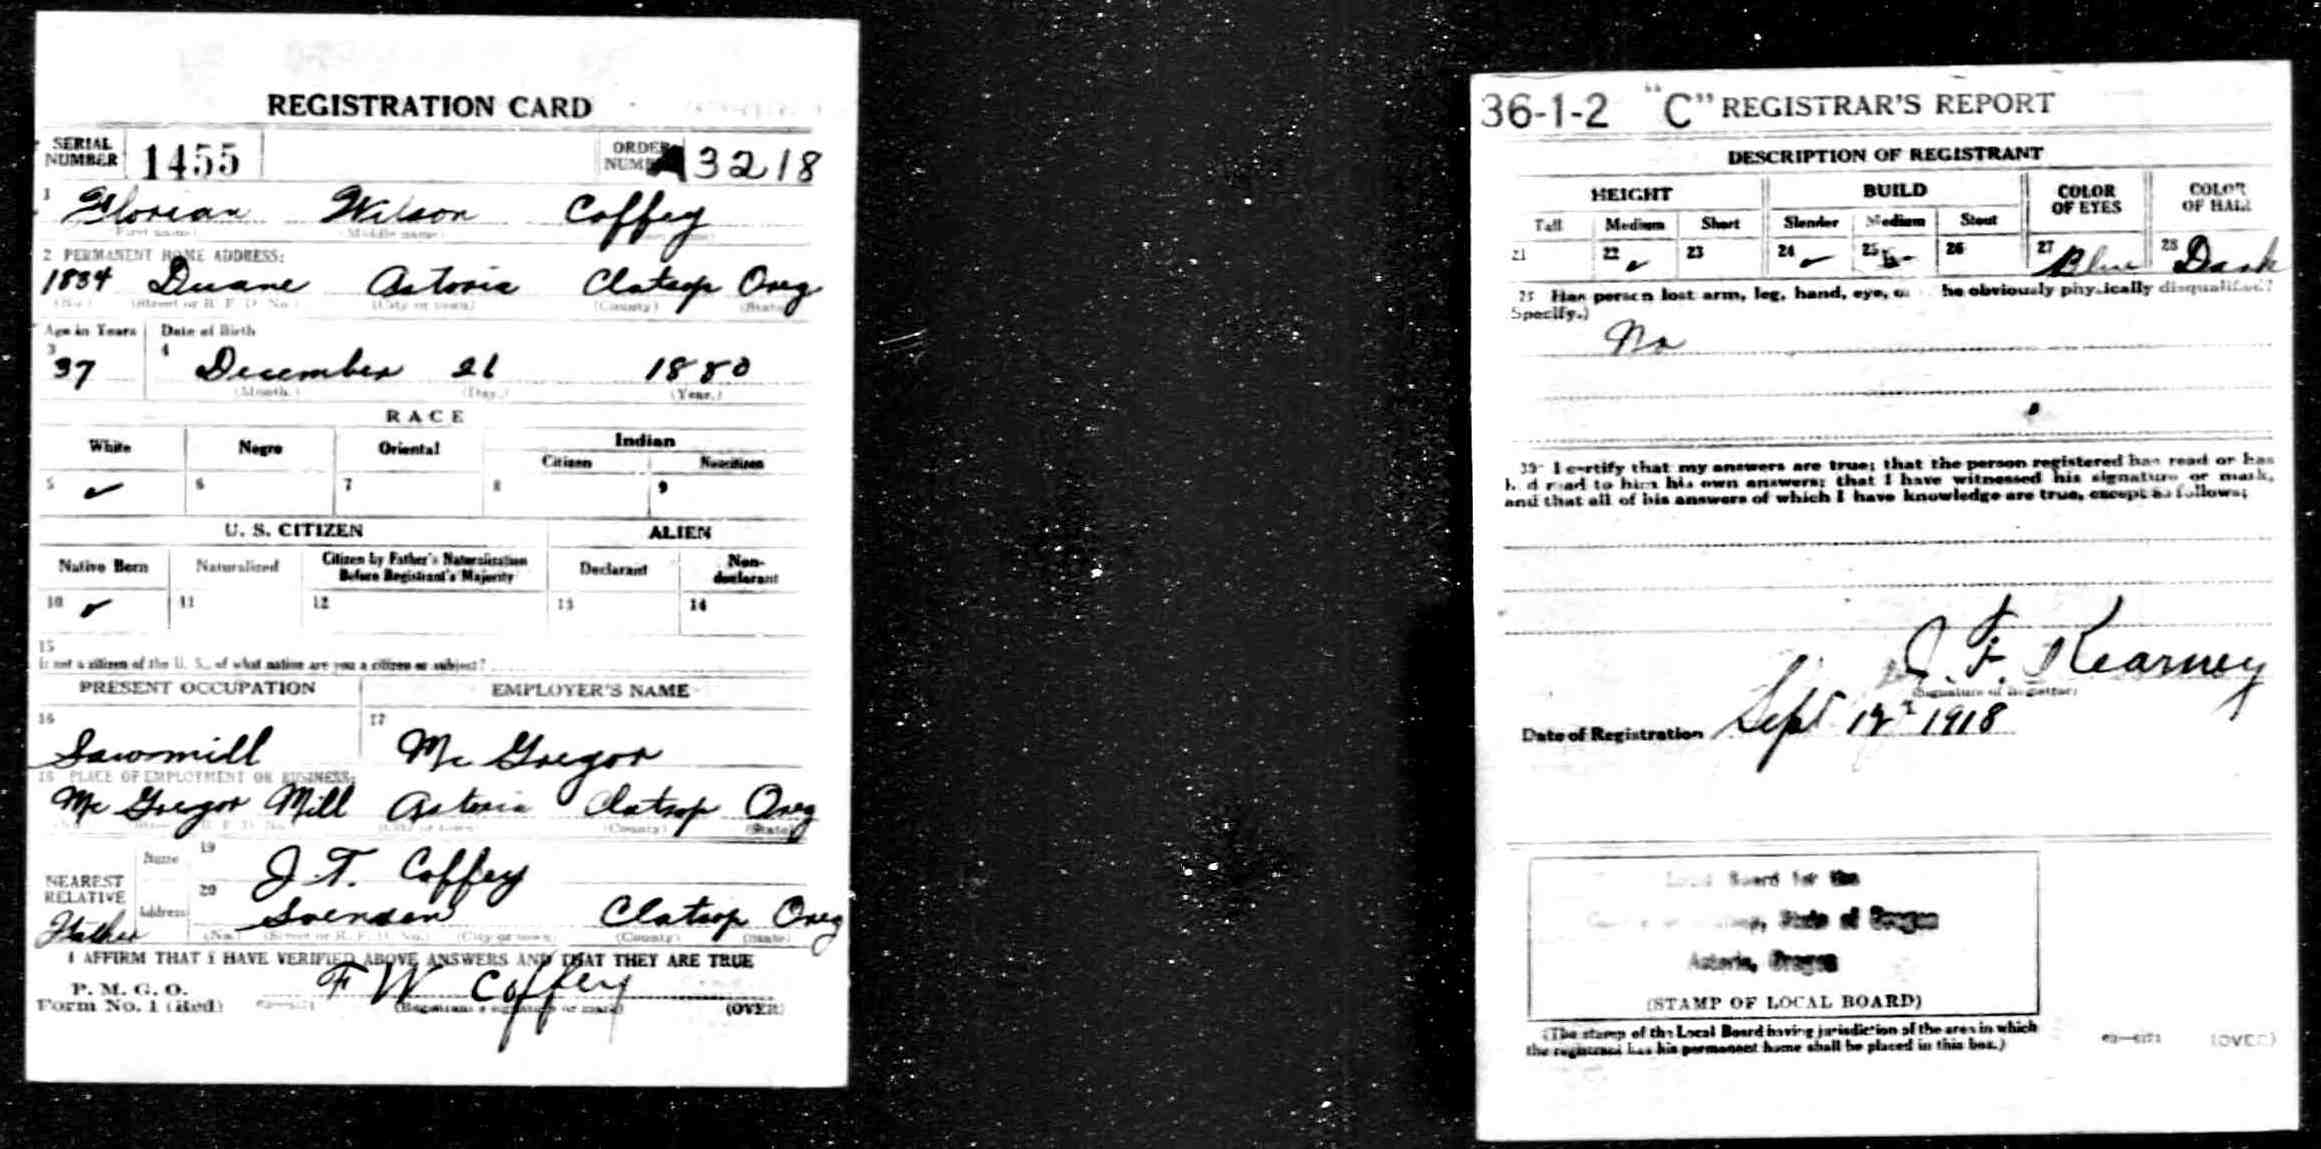 REGISTRATION CARD
SERIAL NUMBER 1455 ORDER NUMBER A3218
1 Florian Wilson Coffey
(First name) (Middle name)
2 PERMANENT HOME ADDRESS:
1834 Duane Astoria Clatsop Oreg
(No.) (Street or R. F. D. No.) (City or town) (County) (State)
Age in Years Date of Birth
3 4
37 December 26 1880
(Month.) (Day.) (Year.)
RACE
White Negro Oriental Indian
Citizen Noncitizen
5 ✓ 6 7 8 9
U. S. CITIZEN ALIEN
Native Born Naturalized Citizen by Father's Naturalization Before Registrant's Majority Declarant Non-declarant
10 ✓ 11 12 13 14
15
If not a citizen of the U. S., of what nation are you a citizen or subject?
PRESENT OCCUPATION EMPLOYER'S NAME
16 17
Sawmill Mc Gregor
18 PLACE OF EMPLOYMENT OR BUSINESS:
Mc Gregor Mill Astoria Clatsop Oreg
(No.) (Street or R. F. D. No.) (City or town) (County) (State)
NEAREST RELATIVE Name 19 J. T. Coffey
Father Address 20 Svensen Clatsop Oreg
(No.) (Street or R. F. D. No.) (City or town) (County) (State)
I AFFIRM THAT I HAVE VERIFIED ABOVE ANSWERS AND THAT THEY ARE TRUE
P. M. G. O.
Form No. 1 (Red) F W Coffey
(Registrant's signature or mark) (OVER)
36-1-2 "C" REGISTRAR'S REPORT
DESCRIPTION OF REGISTRANT
HEIGHT BUILD COLOR OF EYES COLOR OF HAIR
Tall Medium Short Slender Medium Stout
21 22 ✓ 23 24 ✓ 25 26 27 Blue 28 Dark
29 Has person lost arm, leg, hand, eye, or is he obviously physically disqualified?
(Specify.)
No
30 I certify that my answers are true; that the person registered has read or has
had read to him his own answers; that I have witnessed his signature or mark,
and that all of his answers of which I have knowledge are true, except as follows:
F. Kearney
(Signature of Registrar)
Date of Registration Sept 12 1918
Local Board for the
State of Oregon
Astoria, Oregon
(STAMP OF LOCAL BOARD)
(The stamp of the Local Board having jurisdiction of the area in which
the registrant has his permanent home shall be placed in this box.)
03—6171 (OVER)